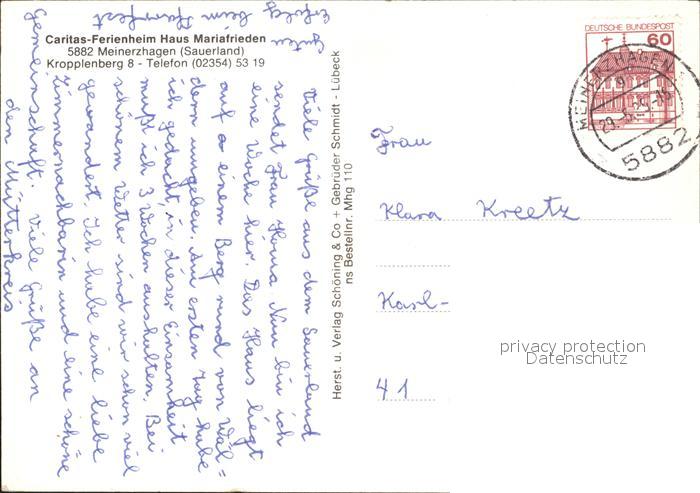 Caritas-Ferienheim Haus Mariafrieden
5882 Meinerzhagen (Sauerland)
Kropplenberg 8 - Telefon (02354) 53 19
Viele Grüße aus dem Sauerland
sendet Frau Nun bin ich
eine Woche hier. Das Haus liegt
auf einem Berg rund von Wäl=
dern umgeben. Am ersten Tag habe
ich gedacht, in dieser Einsamkeit
mußt ich 3 Wochen aushalten. Bei
schönem Wetter sind wir schon viel
gewandert. Ich habe eine liebe
Zimmernachbarin und eine schöne
Gemeinschaft. Viele Grüße an
den Mütterkreis
Guten
Erfolg beim Pfarrfest
Herst. u. Verlag Schöning & Co + Gebrüder Schmidt - Lübeck
ns Bestellnr. Mhg 110
DEUTSCHE BUNDESPOST
60
MEINERZHAGEN
5882
Frau
Klara Kreetz
Karl-
41
privacy protection
Datenschutz